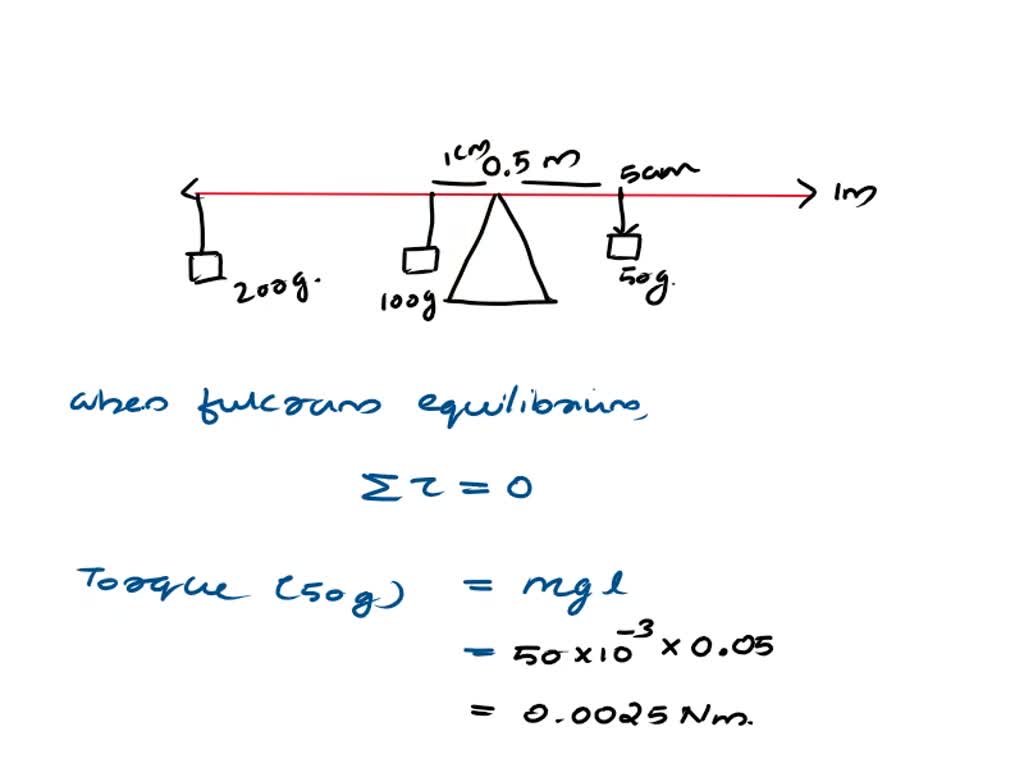 1cm 0.5 m 5cm 1m
200g. 100g 50g.
when fulcrum equilibrium,
Στ = 0
Torque (50g) = mgl
= 50 × 10⁻³ × 0.05
= 0.0025 Nm.